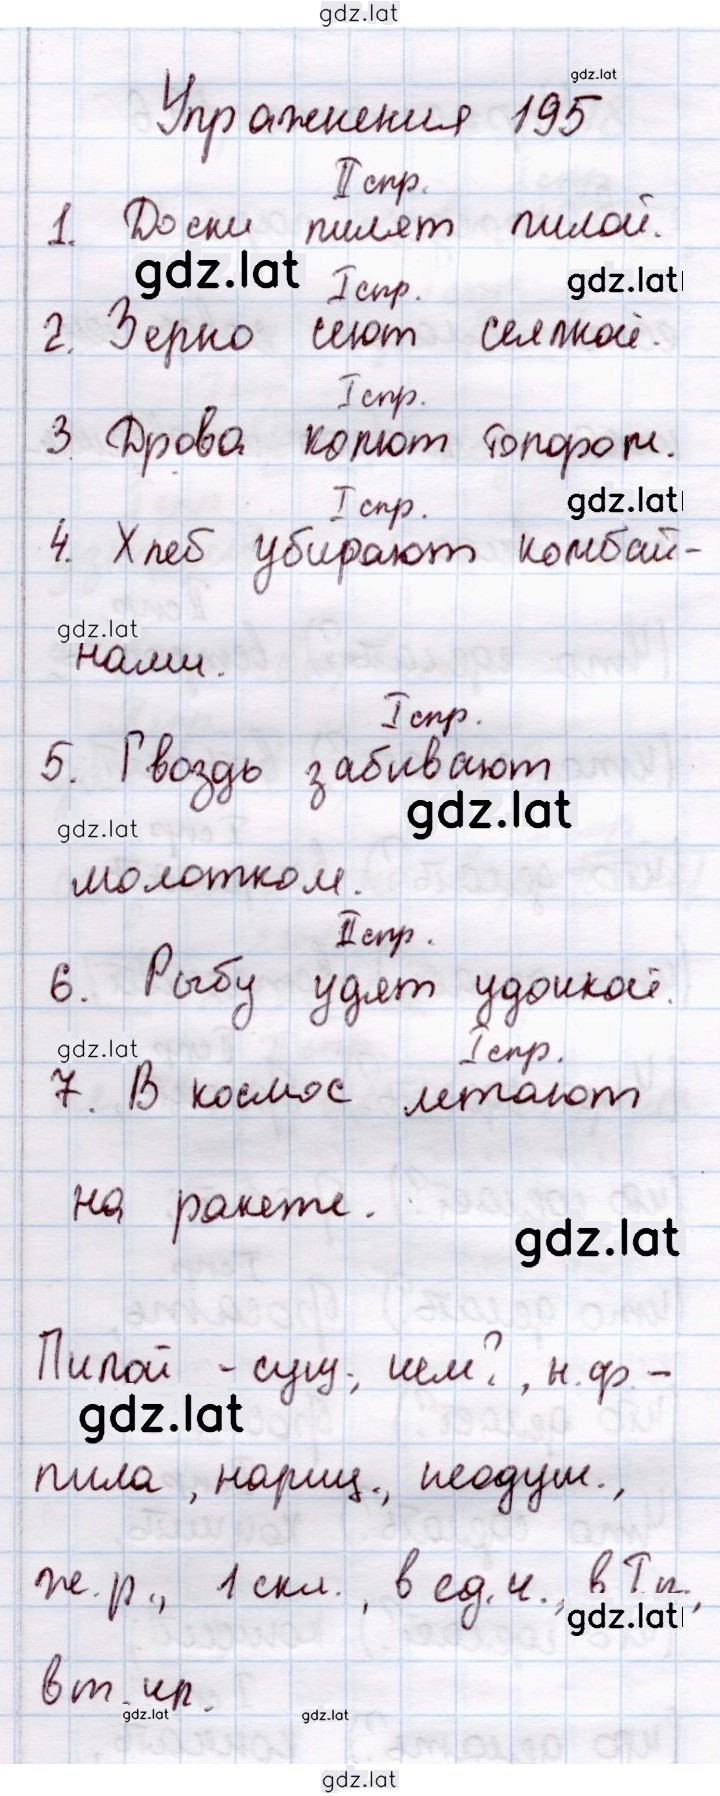 gdz.lat
gdz.lat
Упражнения 195
II спр.
1. Доски пилят пилой.
gdz.lat
gdz.lat
I спр.
2. Зерно сеют сеялкой.
I спр.
3 Дрова колют топором.
I спр.
gdz.lat
4. Хлеб убирают комбай-
gdz.lat
нами.
I спр.
5. Гвоздь забивают
gdz.lat
gdz.lat
молотком.
II спр.
6. Рыбу удят удочкой.
gdz.lat
I спр.
7. В космос летают
на ракете.
gdz.lat
Пилой - сущ., чем?, н.ф. -
gdz.lat
пила, нариц., неодуш.,
ж.р., 1 скл., в ед.ч., в Т.п.,
gdz.lat
вт. чл.
gdz.lat
gdz.lat
gdz.lat